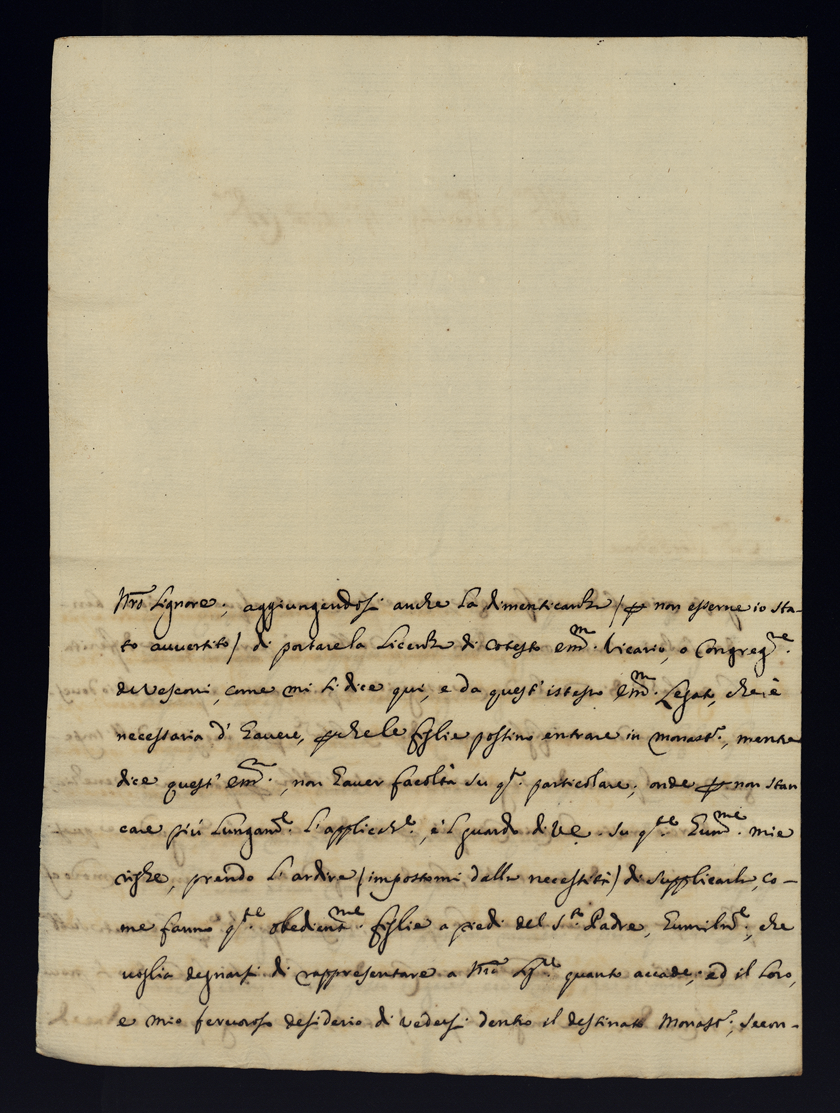 Nrõ Signore; aggiungendosi anche la dimenticanza /p non esserne io sta-
to auuertito/ di portare la Licenza di cotesto Em̃. Vicario, o Congregne.
de Vescoui, come mi si dice qui, e da quest' istesso Em̃. Legato, che è
necessaria d' hauere, pche le figlie possino entrare in Monastr., mentre
dice quest' Em̃., non hauer facoltà su qto. particolare; onde p non stan
care più lungamte. l' applicãe., è l guardo di V.E. su qte. humme. mie
righe, prendo l' ardire /impostomi dalla necessità/ di supplicarla, co-
me fanno qte. obedientme. figlie a piedi del Sto. Padre, humilmte., che
uoglia degnarsi di rappresentare a Nrõ Sigre. quanto accade; ed il loro,
e mio feruoroso desiderio di vedersi dentro il destinato Monastr., secon-